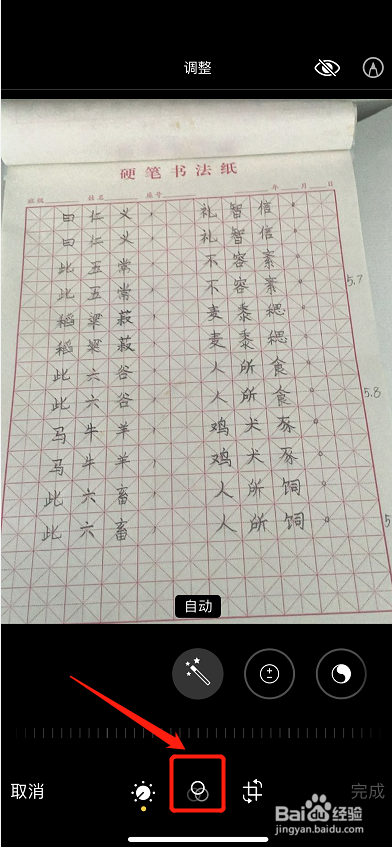 调整
硬笔书法纸
班级 姓名 座号 年 月 日
曰仁义，礼智信。
曰仁义，礼智信。
此五常，不容紊。
此五常，不容紊。 5.7
稻粱菽，麦黍稷。
稻粱菽，麦黍稷。
此六谷，人所食。
此六谷，人所食。 5.8
马牛羊，鸡犬豕。
马牛羊，鸡犬豕。
此六畜，人所饲。
此六畜，人所饲。 5
自动
取消 完成
Baidu经验
jingyan.baidu.com